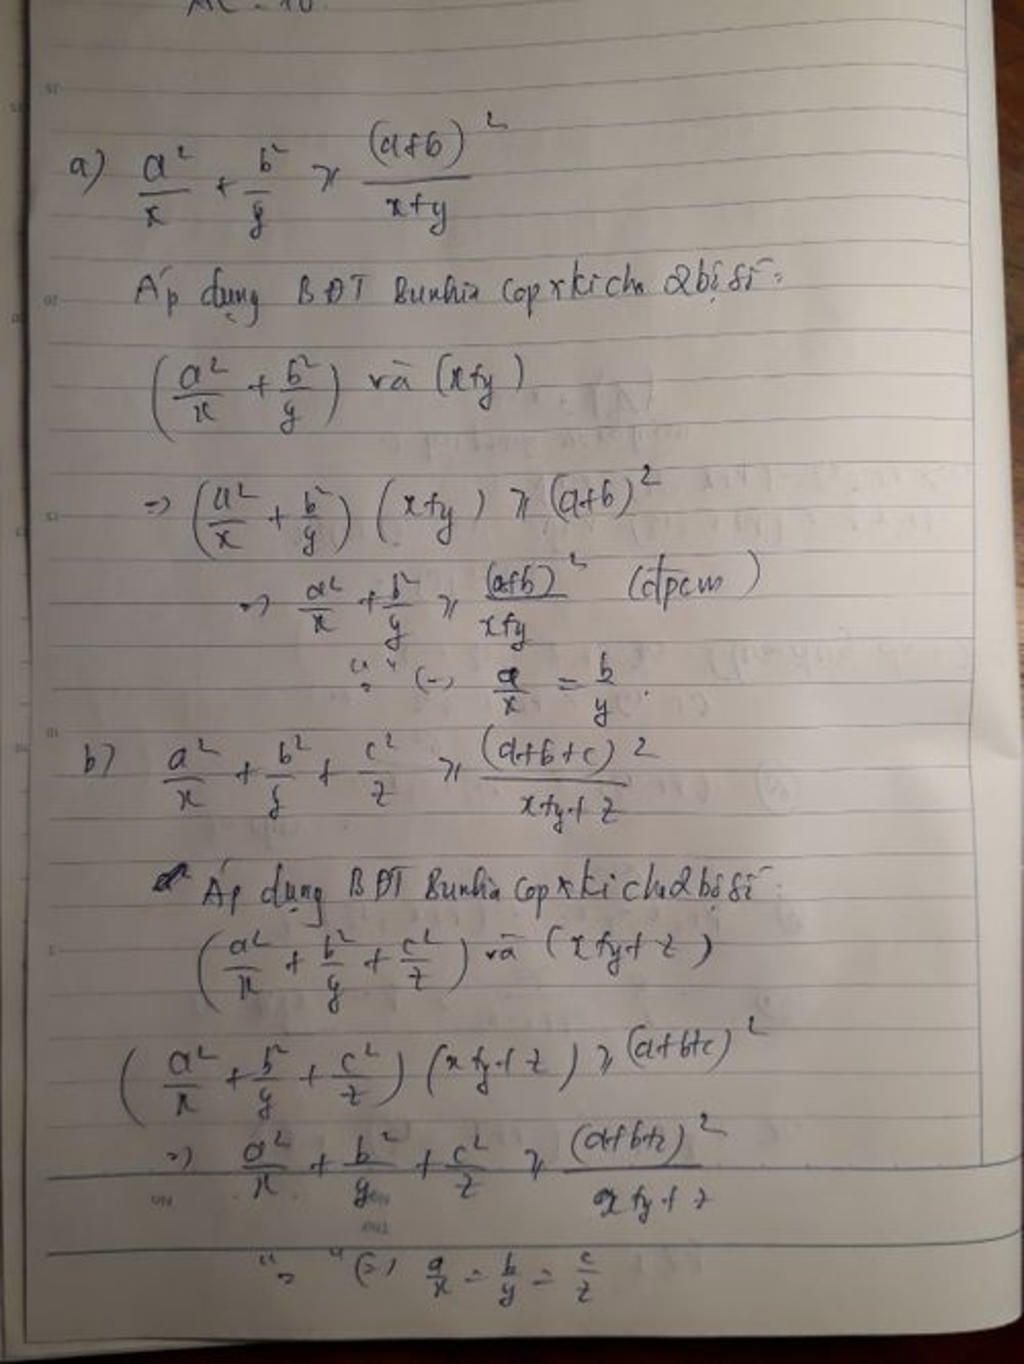 a) a²/x + b²/y ≥ (a+b)²/(x+y)
Áp dụng BĐT Bunhia Copxki cho 2 bộ số:
(a²/x + b²/y) và (x+y)
=> (a²/x + b²/y) (x+y) ≥ (a+b)²
=> a²/x + b²/y ≥ (a+b)²/(x+y) (đpcm)
"=" (=) a/x = b/y.
b) a²/x + b²/y + c²/z ≥ (a+b+c)²/(x+y+z)
Áp dụng BĐT Bunhia Copxki cho 2 bộ số:
(a²/x + b²/y + c²/z) và (x+y+z)
(a²/x + b²/y + c²/z) (x+y+z) ≥ (a+b+c)²
=> a²/x + b²/y + c²/z ≥ (a+b+c)²/(x+y+z)
"=" (=) a/x = b/y = c/z